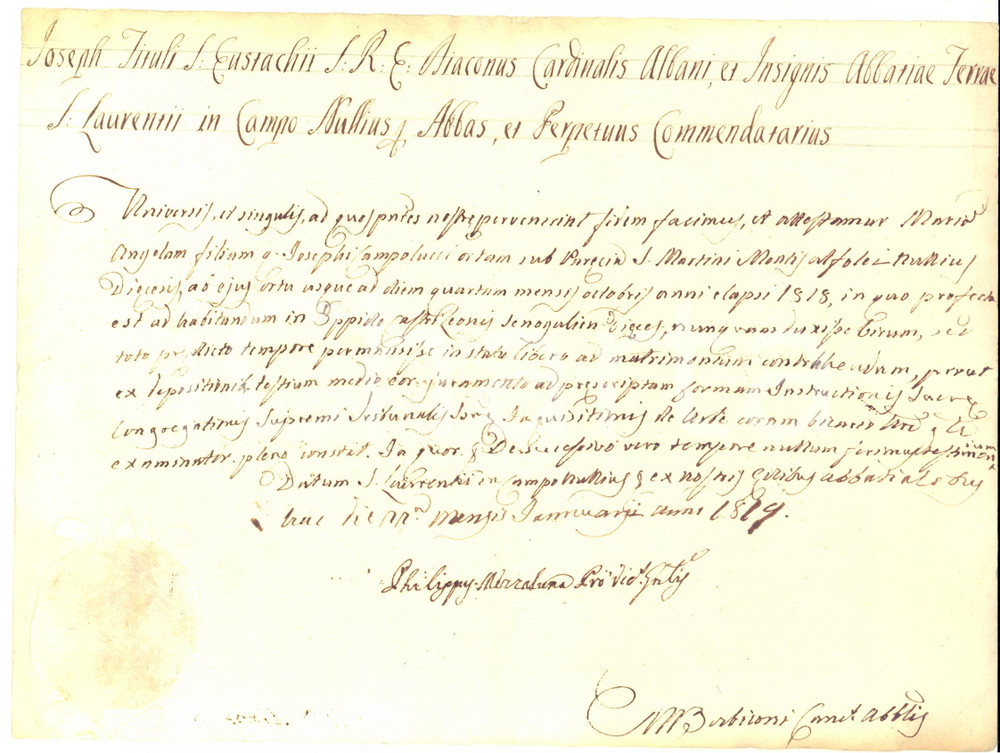 Joseph Tituli S. Eustachii S. R. E. Diaconus Cardinalis Albani, et Insignis Abbatiae Terrae
S. Laurentii in Campo Nullius Abbas, et Perpetuus Commendatarius
Universis, et singulis, ad quos pntes nostre pervenerint fidem facimus, et attestamur Mariam
Angelam filiam q. Josephi Sampolucci ortam sub Parecia S. Martini Montis alfolei Nullius
Diecesis, ab ejus ortu usque ad diem quartam mensis octobris anni elapsi 1818, in quo profecta
est ad habitandum in Oppido Castri Leonis Senogalien Dieces, nunquam duxisse Virum, sed
toto predicto tempore permansisse in statu libero ad matrimonium contrahendum, prout
ex depositionib. testium medio eor. juramento ad prescriptam formam Instructionis Sacre
Congregationis Supremi Tribunalis Inquisitionis de Urbe coram
examinator. plene constat. In quor. De Successivo vero tempore nullum ferimus testimonium
Datum S. Laurentii in Campo Nullius ex nostris Edibus abbatialibus
hac die mensis Januarii anni 1819.
Philippus Mezzaluna Pro Vic. Gnlis
Berbiconi Canc. Abblis